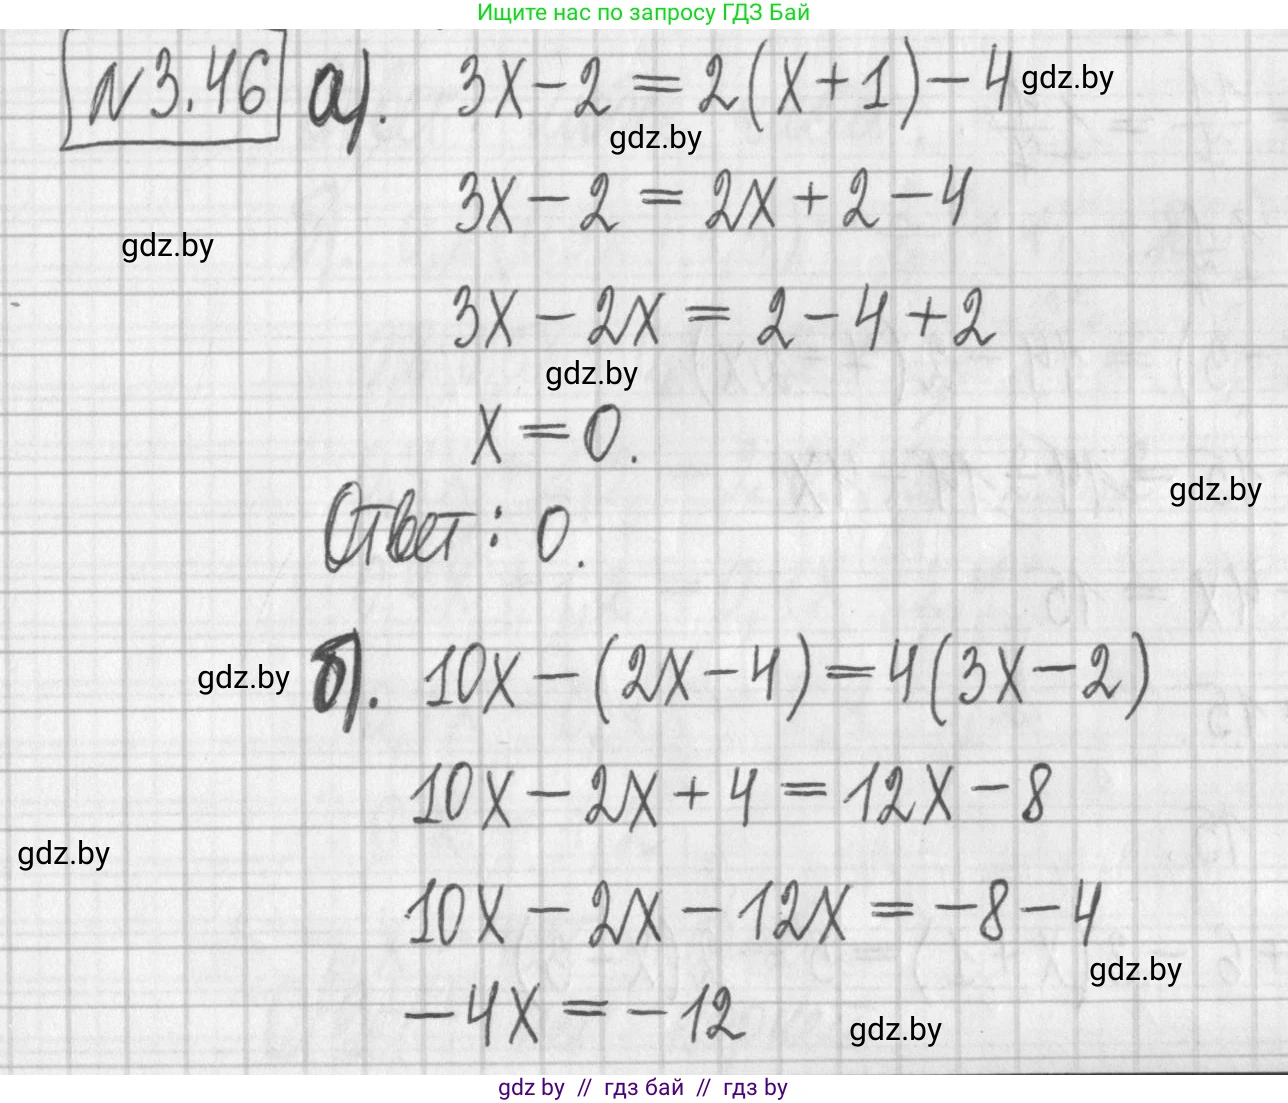 Ищите нас по запросу ГДЗ Бай
N3.46 а). 3x-2=2(x+1)-4
gdz.by
gdz.by
3x-2=2x+2-4
gdz.by
3x-2x=2-4+2
gdz.by
x=0.
gdz.by
Ответ: 0.
gdz.by б). 10x-(2x-4)=4(3x-2)
10x-2x+4=12x-8
gdz.by
10x-2x-12x=-8-4
gdz.by
-4x=-12
gdz.by
gdz by // гдз бай // гдз by